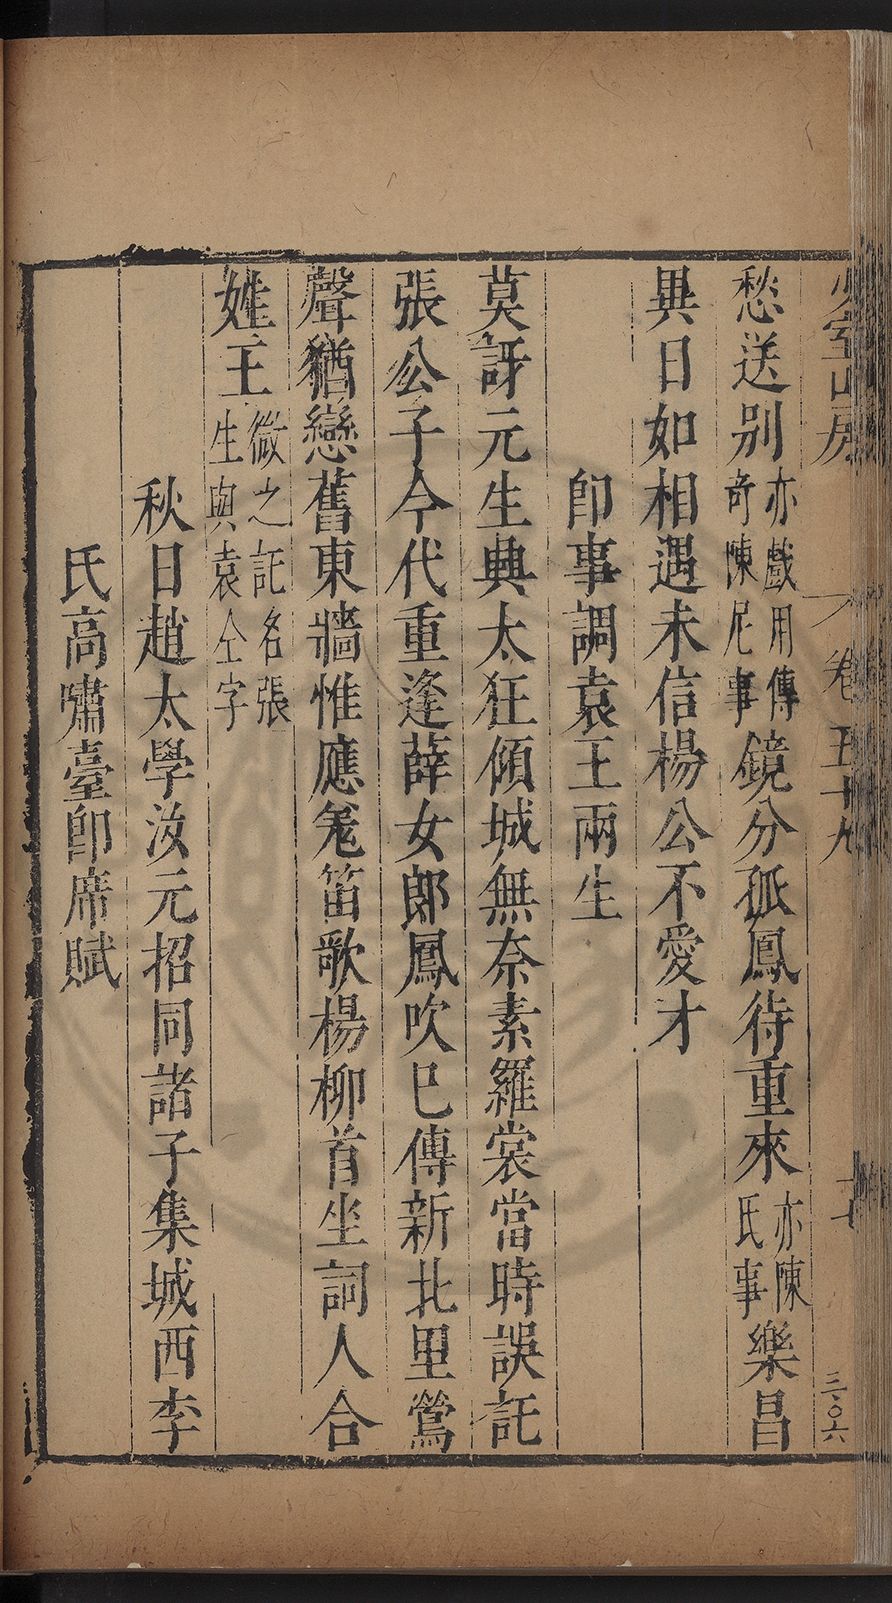 少室山房 卷五十九 十七 三〇六
愁送别亦戲用傳奇陳尼事鏡分孤鳳待重來亦陳氏事樂昌
異日如相遇未信楊公不愛才
即事調袁王兩生
莫訝元生興太狂傾城無奈素羅裳當時誤託
張公子今代重逢薛女郎鳳吹巳傳新北里鶯
聲猶戀舊東牆惟應笔笛歌楊柳首坐詞人合
姓王微之託名張生與袁仝字
秋日趙太學汝元招同諸子集城西李
氏高嘯臺即席賦